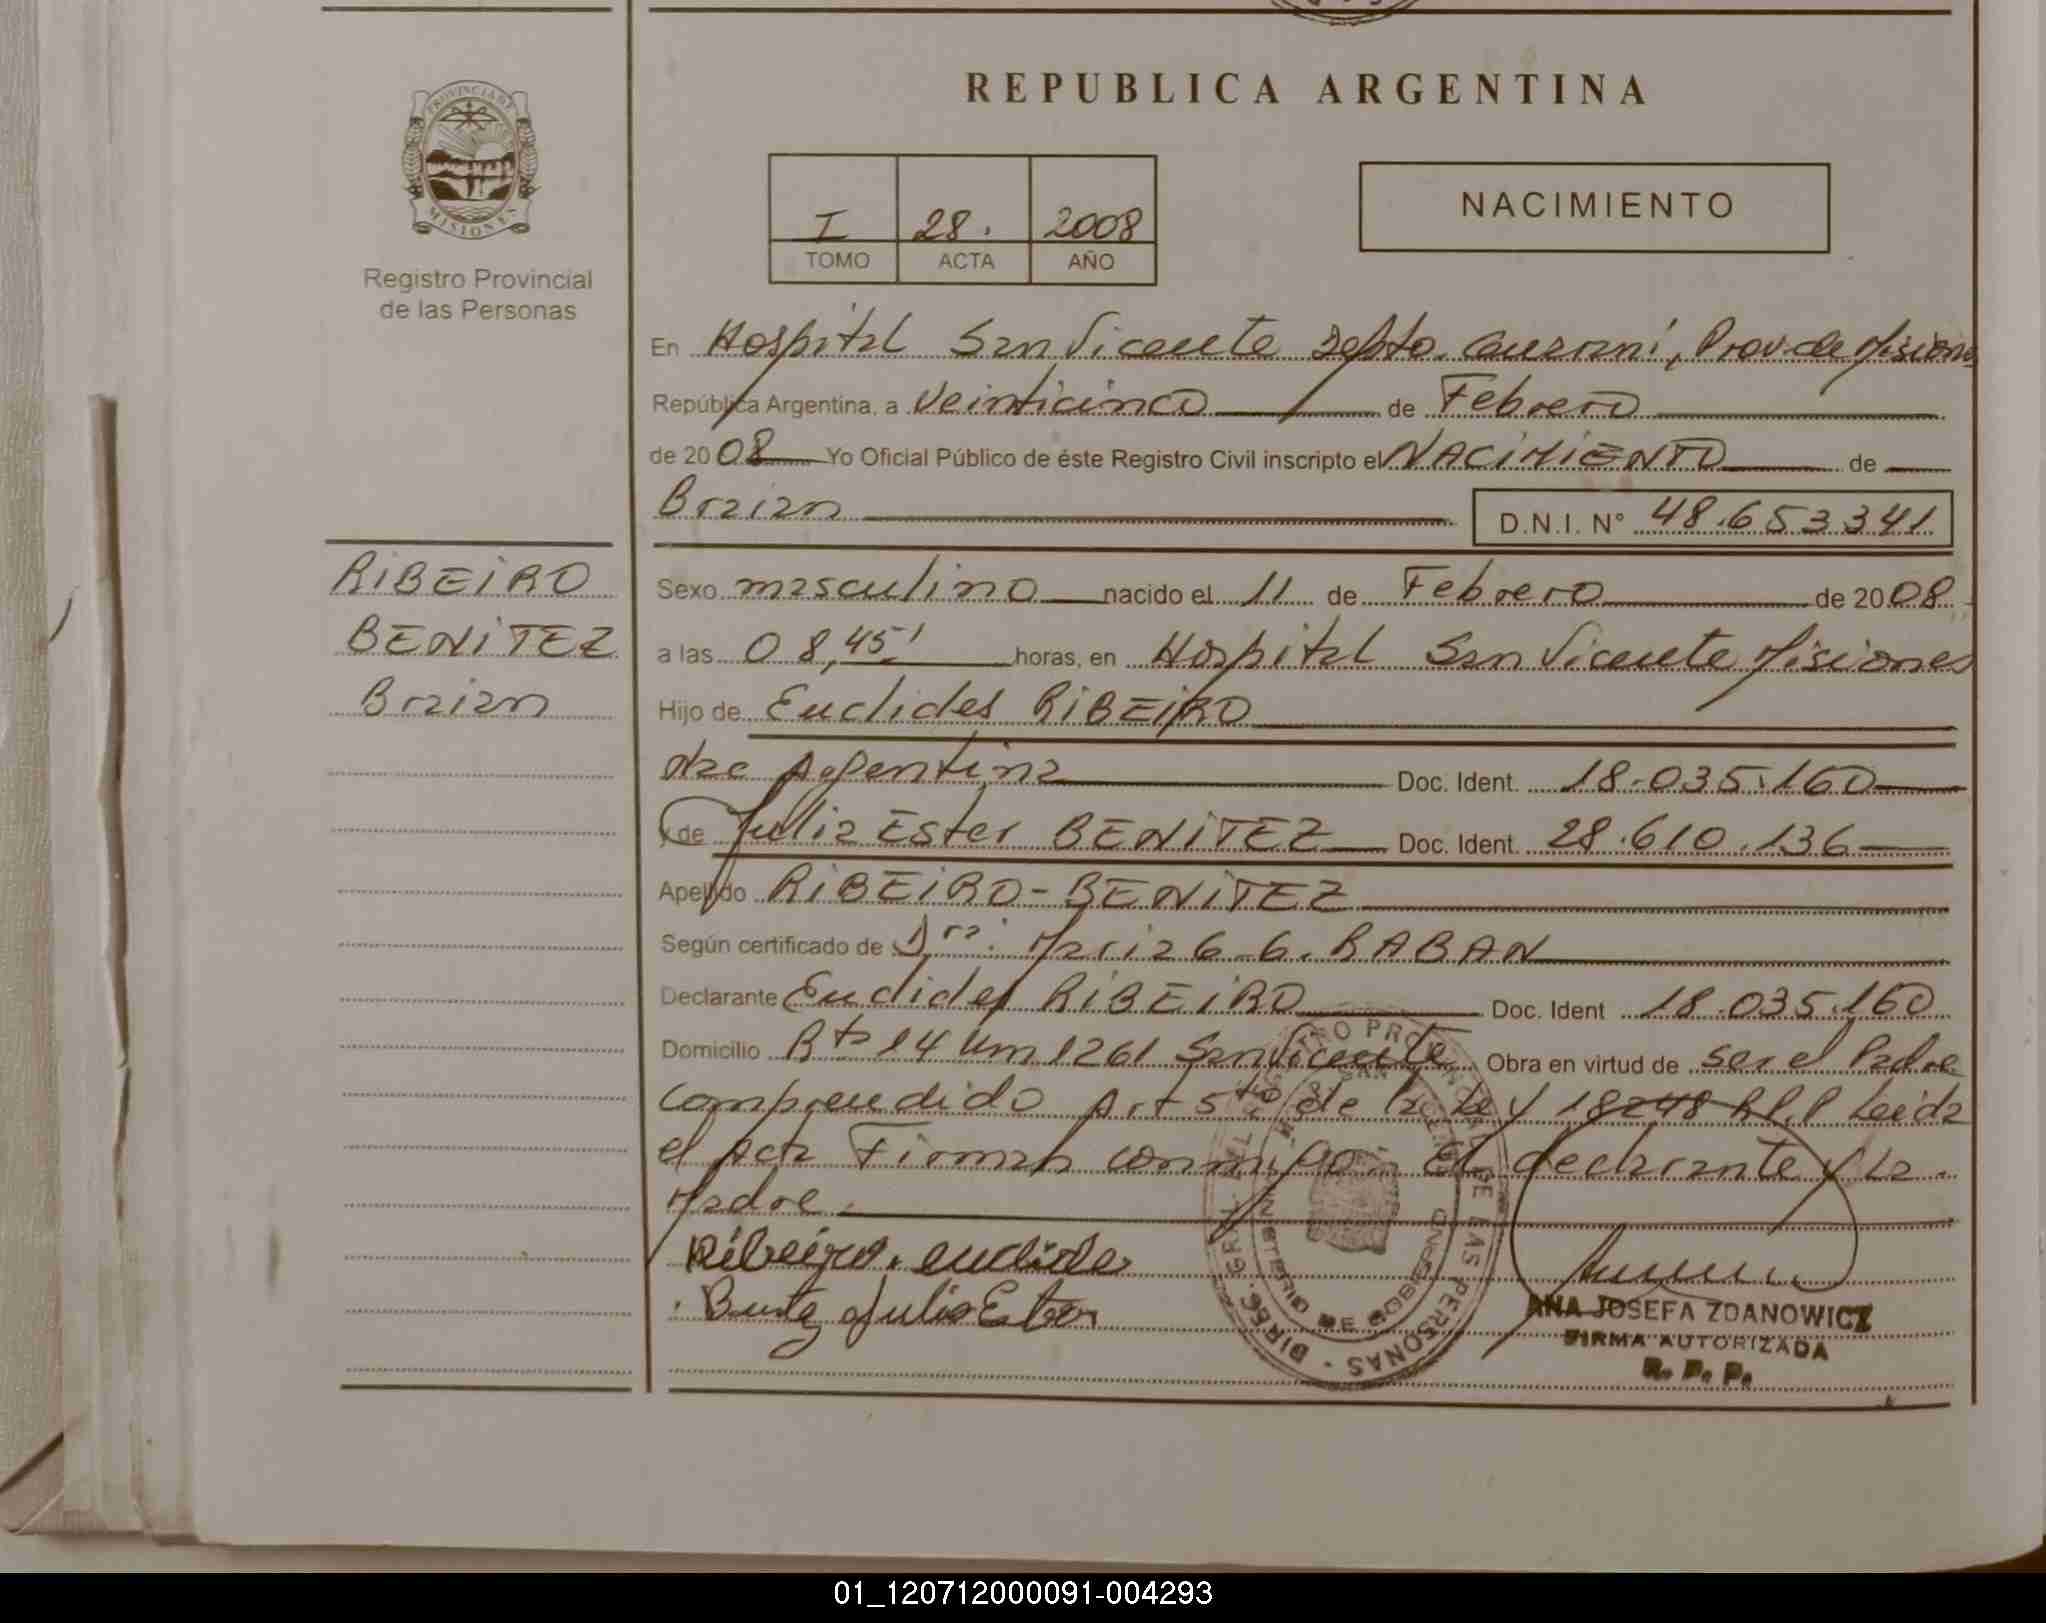 REPUBLICA ARGENTINA
PROVINCIA DE
MISIONES
Registro Provincial
de las Personas
I 28. 2008
TOMO ACTA AÑO
NACIMIENTO
En Hospital San Vicente Depto. Guarani, Prov. de Misiones
República Argentina, a Veinticinco de Febrero
de 2008 Yo Oficial Público de éste Registro Civil inscripto el NACIMIENTO de
Braian D.N.I. N° 48.653.341
RIBEIRO
BENITEZ
Braian
Sexo masculino nacido el 11 de Febrero de 2008
a las 08,45' horas, en Hospital San Vicente Misiones
Hijo de Euclides RIBEIRO
Nac Argentina Doc. Ident. 18.035.160
y de Julia Ester BENITEZ Doc. Ident. 28.610.136
Apellido RIBEIRO-BENITEZ
Según certificado de Dra. Maria G. G. RABAN
Declarante Euclides RIBEIRO Doc. Ident 18.035.160
Domicilio Rta 14 Km 1261 San Vicente Obra en virtud de ser el Padre
comprendido Art 5to de la Ley 18248 R.P.P Leida
el Acta Firman conmigo El declarante y La
Madre.
Ribeiro. euclides
Julia Ester
ANA JOSEFA ZDANOWICZ
FIRMA AUTORIZADA
R. P. P.
01_120712000091-004293